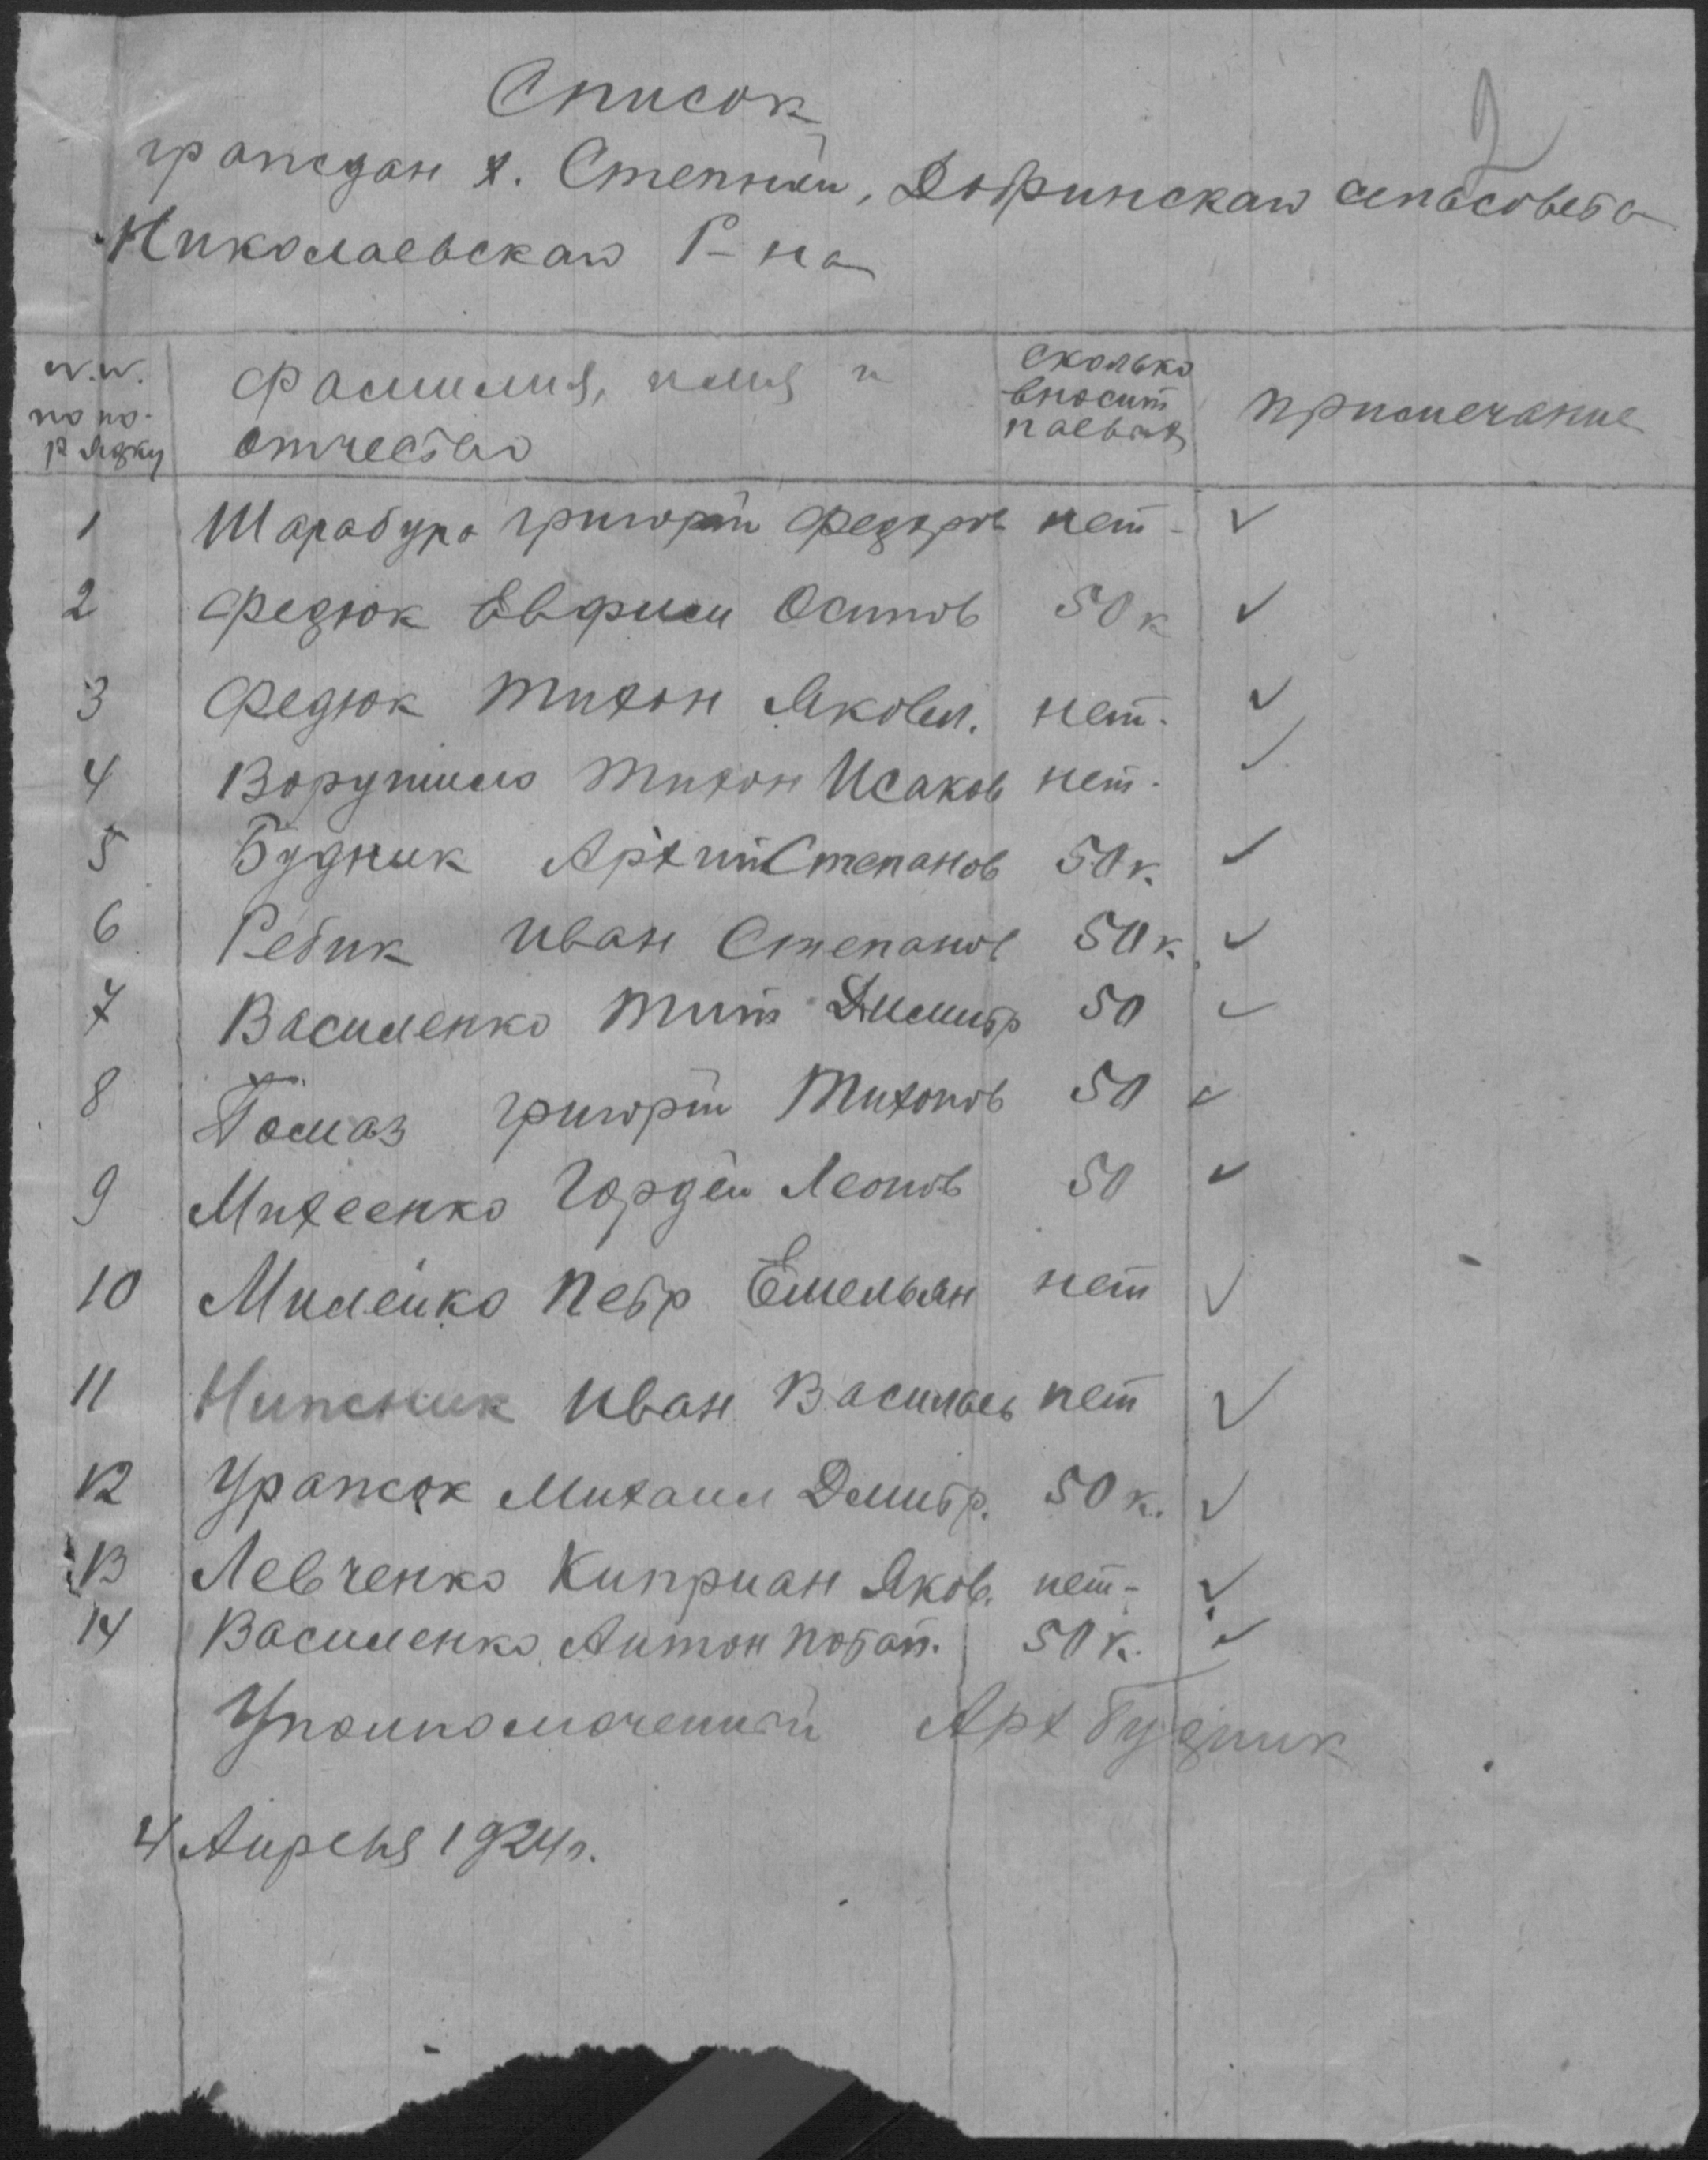 2
Список
граждан х. Степной, Добринскаго сельсовета
Николаевскаго Р-на
№.№. по по-рядку
фамилия, имя и отчество
сколько вносит паевых
примечание
1 Шарабура григорий федоров нет -
2 федюк Евфим Осипов 50 к
3 федюк Тихон Яковл. нет.
4 Ворушило Тихон Исаков нет.
5 Будник Архип Степанов 50 к.
6 Ребик Иван Степанов 50 к.
7 Василенко Тит Димитр 50
8 Томаз григорий Тихонов 50
9 Михеенко Гордей Леонов 50
10 Милейко Петр Емельян нет
11 Нижник Иван Васильев нет
12 Уражок Михаил Дмитр. 50 к.
13 Левченко Киприан Яков. нет -
14 Василенко Антон потап. 50 к.
Уполномоченный Арх Будник
4 Апреля 1924 г.